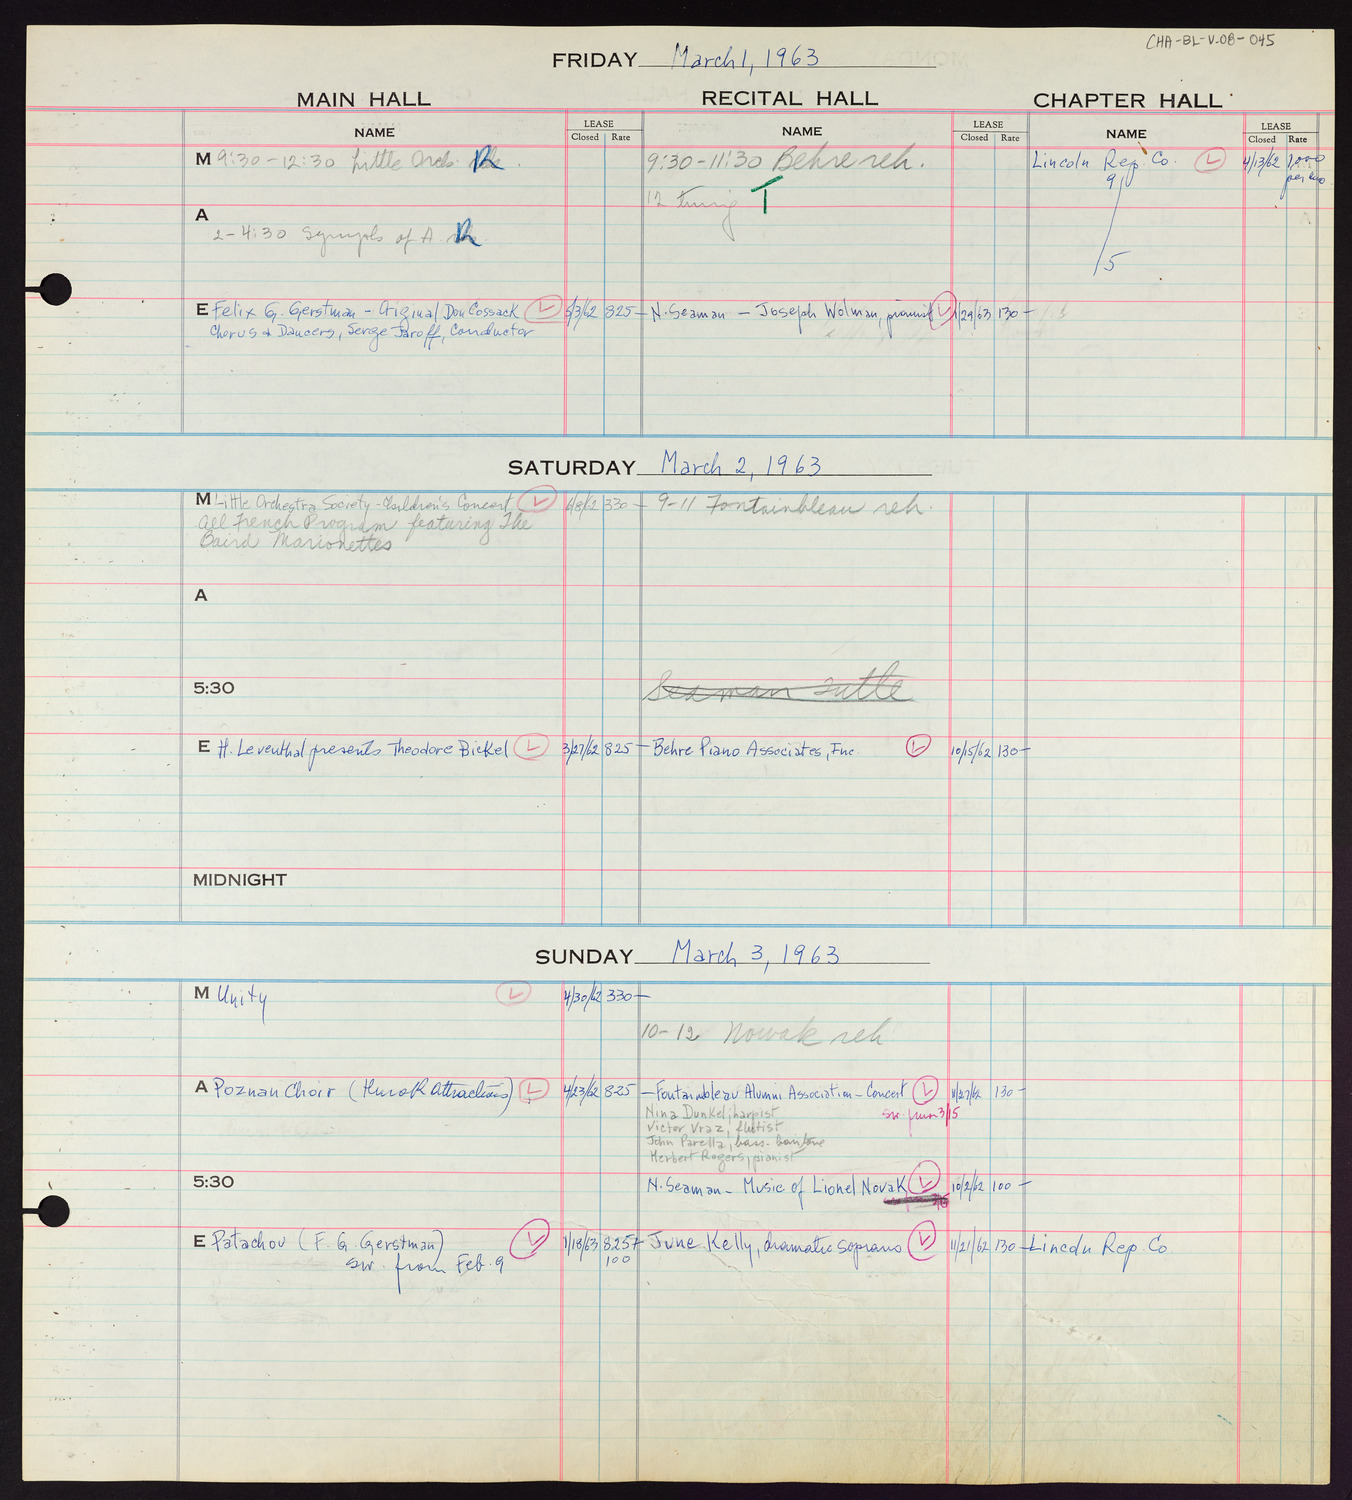 CHA-BL-V.08-045
FRIDAY March 1, 1963
MAIN HALL RECITAL HALL CHAPTER HALL
NAME LEASE Closed Rate NAME LEASE Closed Rate NAME LEASE Closed Rate
M 9:30-12:30 Little Orch. R 9:30-11:30 Behre reh. Lincoln Rep. Co. L 4/13/62 1,000
9 per
12 tuning T
A
2-4:30 Symph of A. R
5
E Felix G. Gerstman - Original Don Cossack L 5/3/62 825- N. Seaman - Joseph Wolman, pianist L 1/29/63 130-
Chorus & Dancers, Serge Jaroff, Conductor
SATURDAY March 2, 1963
M Little Orchestra Society - Children's Concert L 6/8/62 330- 9-11 Fontainbleau reh.
all French Program featuring The
Baird Marionettes
A
5:30 Seaman Tuttle
E H. Leventhal presents Theodore Bickel L 3/27/62 825- Behre Piano Associates, Inc. L 10/15/62 130-
MIDNIGHT
SUNDAY March 3, 1963
M Unity L 4/30/62 330-
10-12 Nowak reh
A Poznan Choir (Hurok Attractions) L 4/23/62 825- Fontainbleau Alumni Association - Concert L 11/27/62 130-
Nina Dunkel, harpist sw. from 3/15
Victor Vraz, flutist
John Parella, bass-baritone
Herbert Rogers, pianist
5:30 N. Seaman - Music of Lionel Novak L 10/2/62 100-
E Patachou (F. G. Gerstman) L 1/18/63 825+ June Kelly, dramatic soprano L 11/21/62 130- Lincoln Rep. Co
sw. from Feb. 9 100